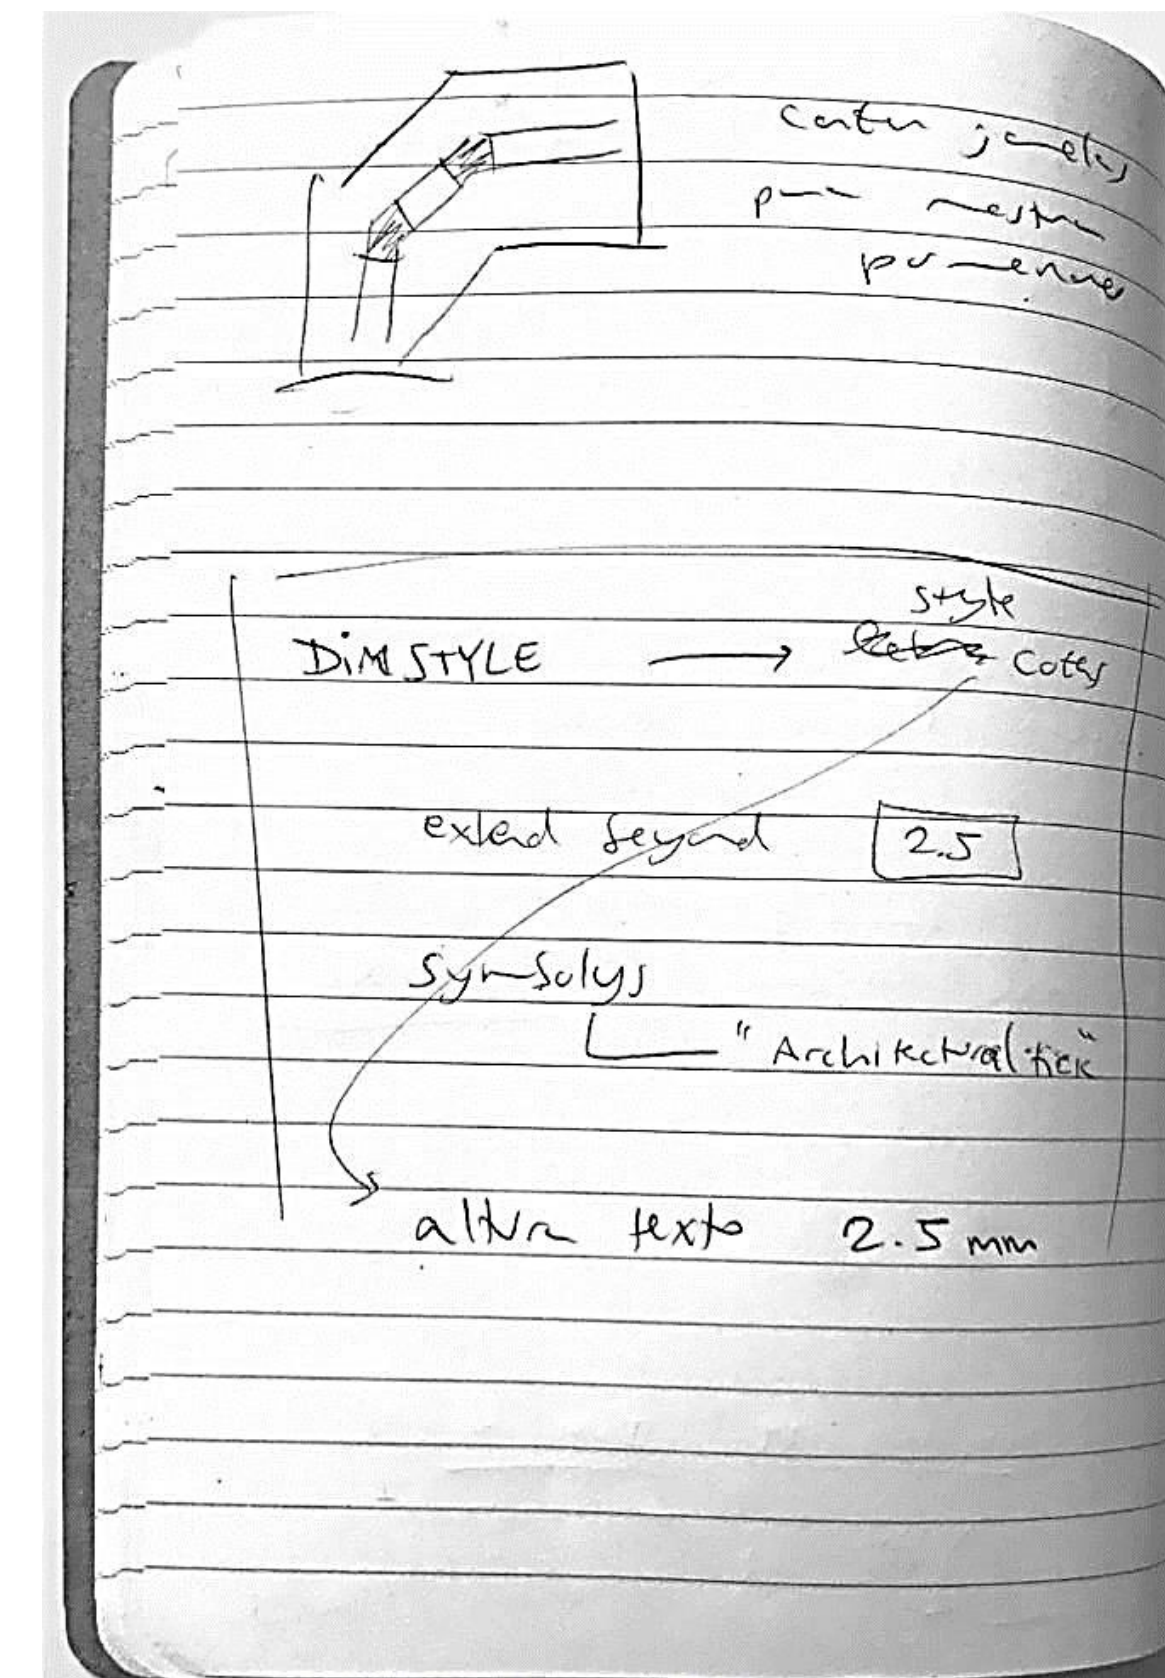 cortar janelas
para mostrar
pormenores
style
DiMSTYLE Cotas
extend beyond 2.5
Symbolys
"Architectural tick"
altura texto 2.5 mm